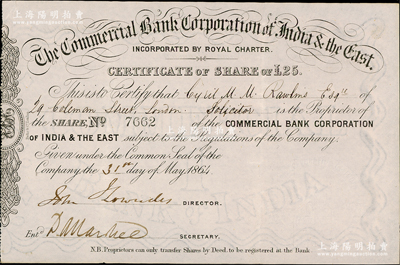 上海陽明拍賣
The Commercial Bank Corporation of India & the East.
INCORPORATED BY ROYAL CHARTER.
CERTIFICATE OF SHARE OF £25.
This is to Certify that Cyril M. M. Rawlins Esqre. of
29 Coleman Street, London Solicitor is the Proprietor of
the SHARE, No 7662 of the COMMERCIAL BANK CORPORATION
OF INDIA & THE EAST subject to the Regulations of the Company.
Given under the Common Seal of the
Company, the 31st day of May 1864
John Lowndes DIRECTOR.
Entd. SECRETARY.
N.B. Proprietors can only transfer Shares by Deed to be registered at the Bank